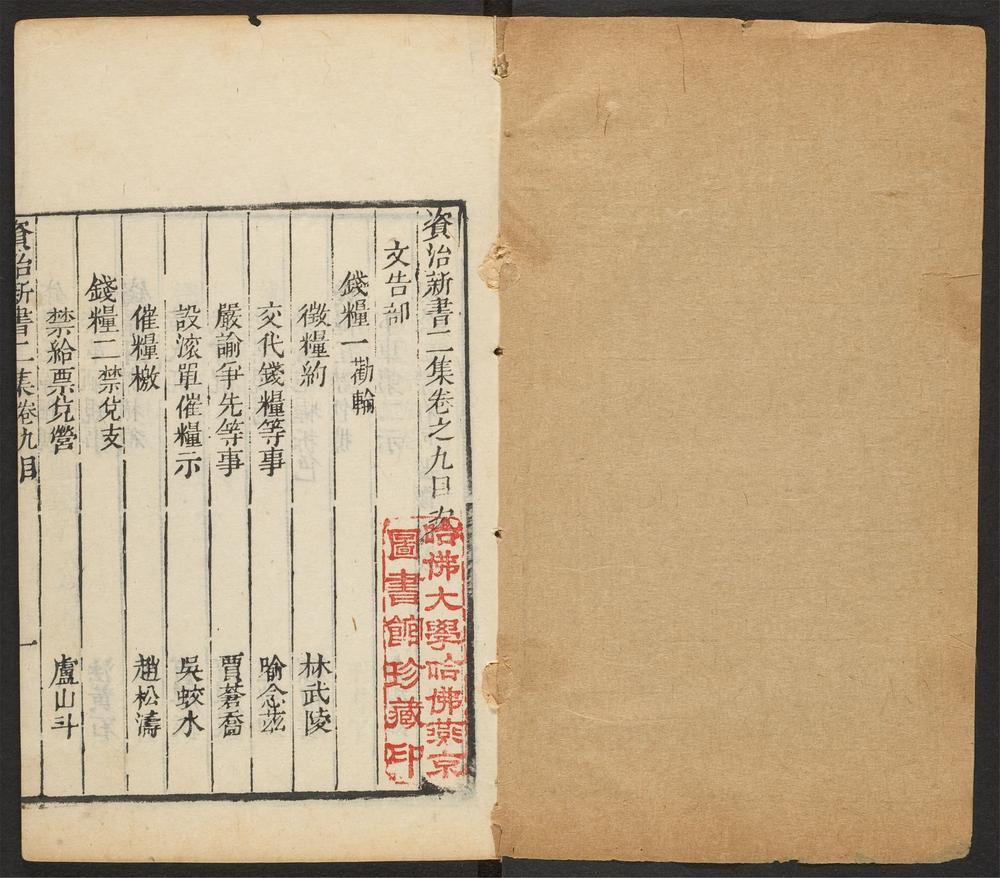 資治新書二集卷之九目次
文告部
錢糧一勸輸
徵糧約 林武陵
交代錢糧等事 喻念茲
嚴諭爭先等事 賈蒼喬
設滚單催糧示 吳蛟水
催糧檄 趙松濤
錢糧二禁兌支
禁給票兌營 盧山斗
資治新書二集卷九目 一
哈佛大學哈佛燕京
圖書館珍藏印